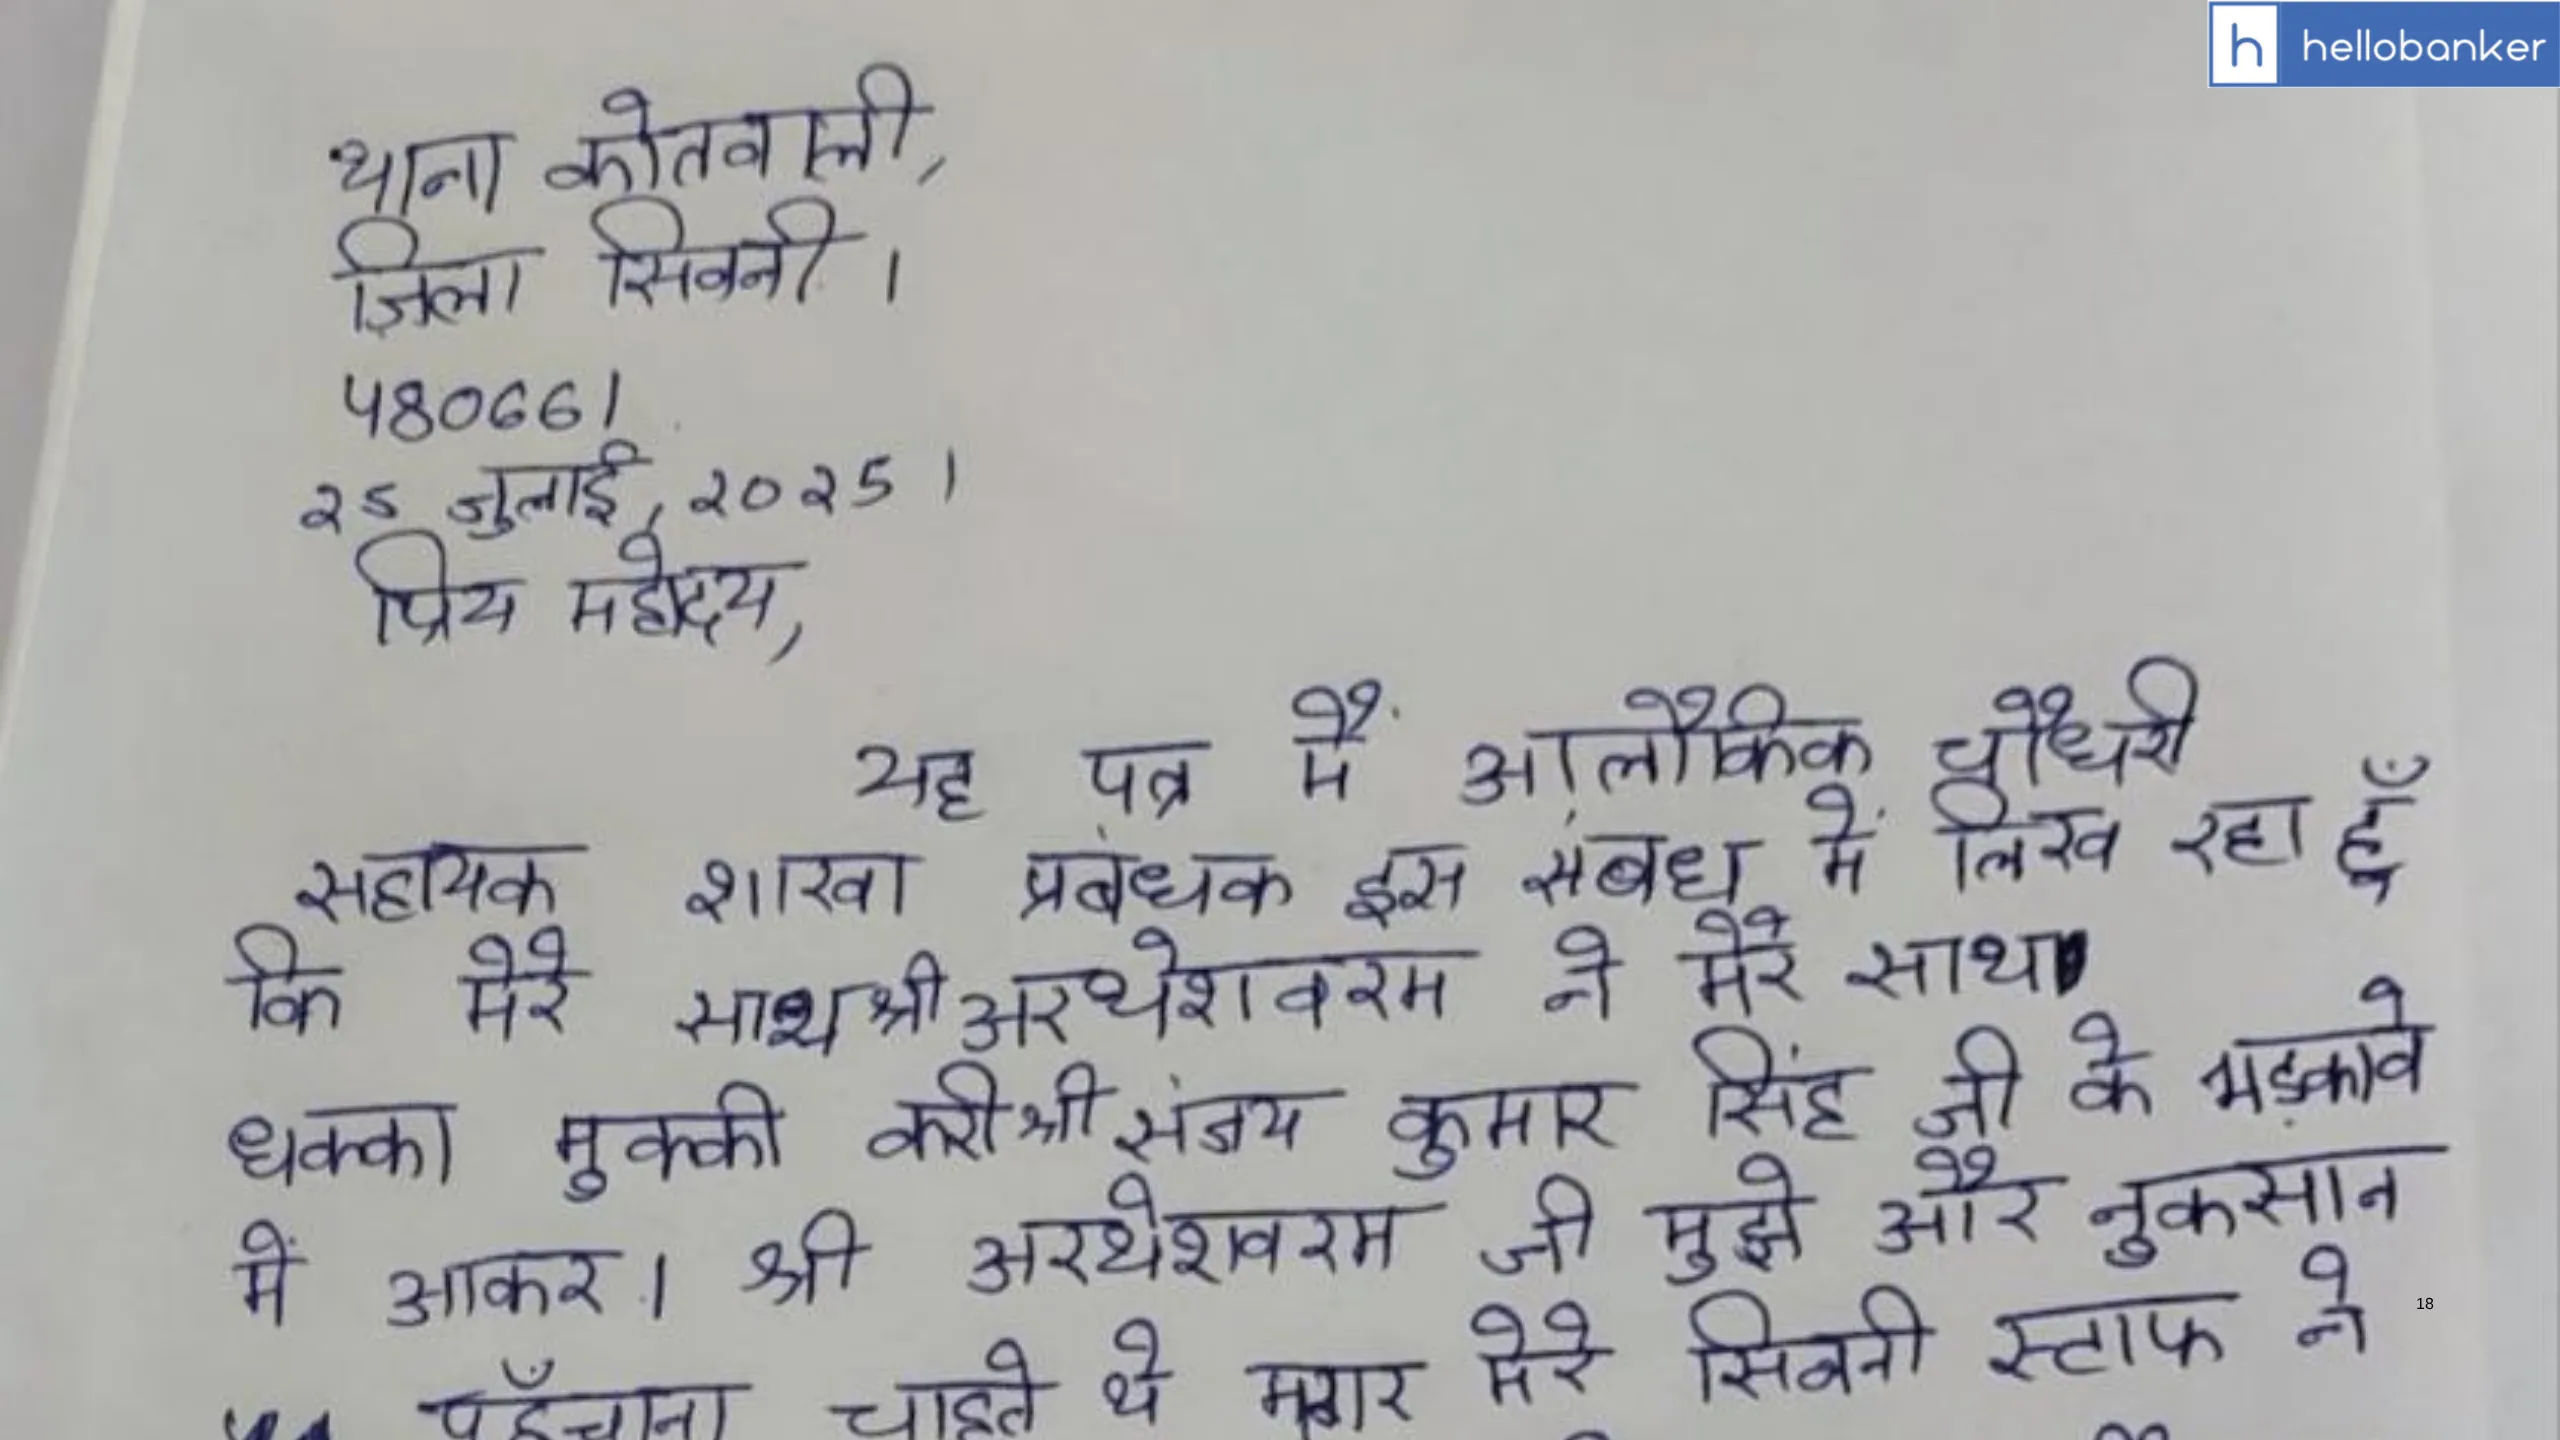 hellobanker
थाना कोतवाली,
ज़िला सिवनी ।
480661
२५ जुलाई, २०२5 ।
प्रिय महोदय,
यह पत्र मैं आलौकिक चौधरी
सहायक शाखा प्रबंधक इस संबंध में लिख रहा हूँ
कि मेरे साथ श्री अरथेशवरम ने मेरे साथ
धक्का मुक्की करी श्री संजय कुमार सिंह जी के भड़कावे
में आकर । श्री अरथेशवरम जी मुझे और नुकसान
18
पहुँचाना चाहते थे मगर मेरे सिवनी स्टाफ ने